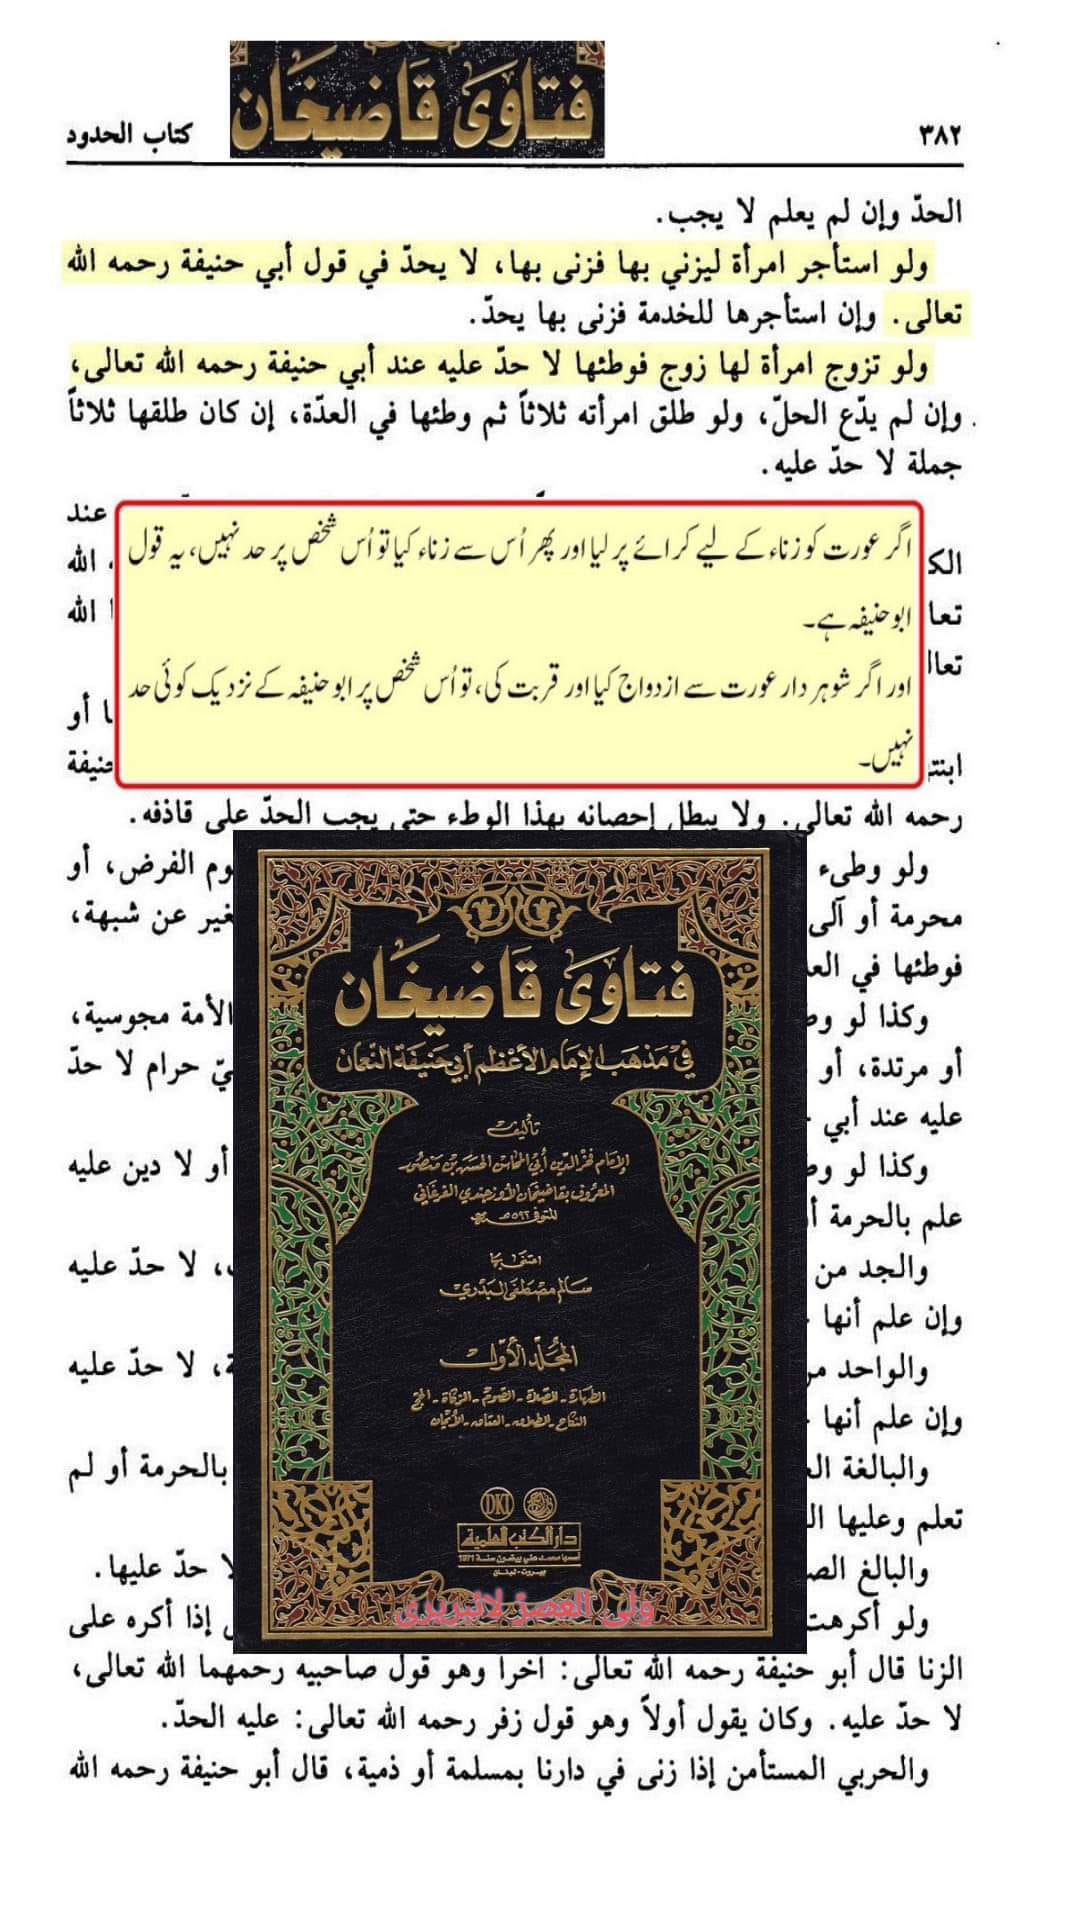 فتاوى قاضيخان
٣٨٢
كتاب الحدود
الحدّ وإن لم يعلم لا يجب.
ولو استأجر امرأة ليزني بها فزنى بها، لا يحدّ في قول أبي حنيفة رحمه الله
تعالى. وإن استأجرها للخدمة فزنى بها يحدّ.
ولو تزوج امرأة لها زوج فوطئها لا حدّ عليه عند أبي حنيفة رحمه الله تعالى،
وإن لم يدّع الحلّ، ولو طلق امرأته ثلاثاً ثم وطئها في العدّة، إن كان طلقها ثلاثاً
جملة لا حدّ عليه.
عند
الله
الله
اگر عورت کو زناء کے لیے کرائے پر لیا اور پھر اُس سے زناء کیا تو اُس شخص پر حد نہیں، یہ قول
ابو حنیفہ ہے۔
اور اگر شوہر دار عورت سے ازدواج کیا اور قربت کی، تو اُس شخص پر ابو حنیفہ کے نزدیک کوئی حد
نہیں۔
أو
رحمه الله تعالى. ولا يبطل إحصانه بهذا الوطء حتى يجب الحدّ على قاذفه.
ولو وطىء
الفرض، أو
محرمة أو آلى
عن شبهة،
فوطئها في
وكذا لو
الأمة مجوسية،
أو مرتدة، أو
حرام لا حدّ
عليه عند أبي
وكذا لو
أو لا دين عليه
علم بالحرمة
والجد من
لا حدّ عليه
وإن علم أنها
والواحد
لا حدّ عليه
وإن علم أنها
والبالغة
بالحرمة أو لم
تعلم وعليها
والبالغ
حدّ عليها.
ولو أكرهت
إذا أكره على
فتاوى قاضيخان
في مذهب الإمام الأعظم أبي حنيفة النعمان
تأليف
الإمام فخر الدين أبي المحاسن الحسن بن منصور
المعروف بقاضيخان الأوزجندي الفرغاني
المتوفى سنة ٥٩٢ هـ
اعتنى بها
سالم مصطفى البدري
المجلد الأول
الطهارة - الصلاة - الصوم - الزكاة - الحج
النكاح - الطلاق - العتاق - الأيمان
DKI
دار الكتب العلمية
أسسها محمد علي بيضون سنة 1971
بيروت - لبنان
ولی العصر لائبریری
الزنا قال أبو حنيفة رحمه الله تعالى: آخراً وهو قول صاحبيه رحمهما الله تعالى،
لا حدّ عليه. وكان يقول أولاً وهو قول زفر رحمه الله تعالى: عليه الحدّ.
والحربي المستأمن إذا زنى في دارنا بمسلمة أو ذمية، قال أبو حنيفة رحمه الله